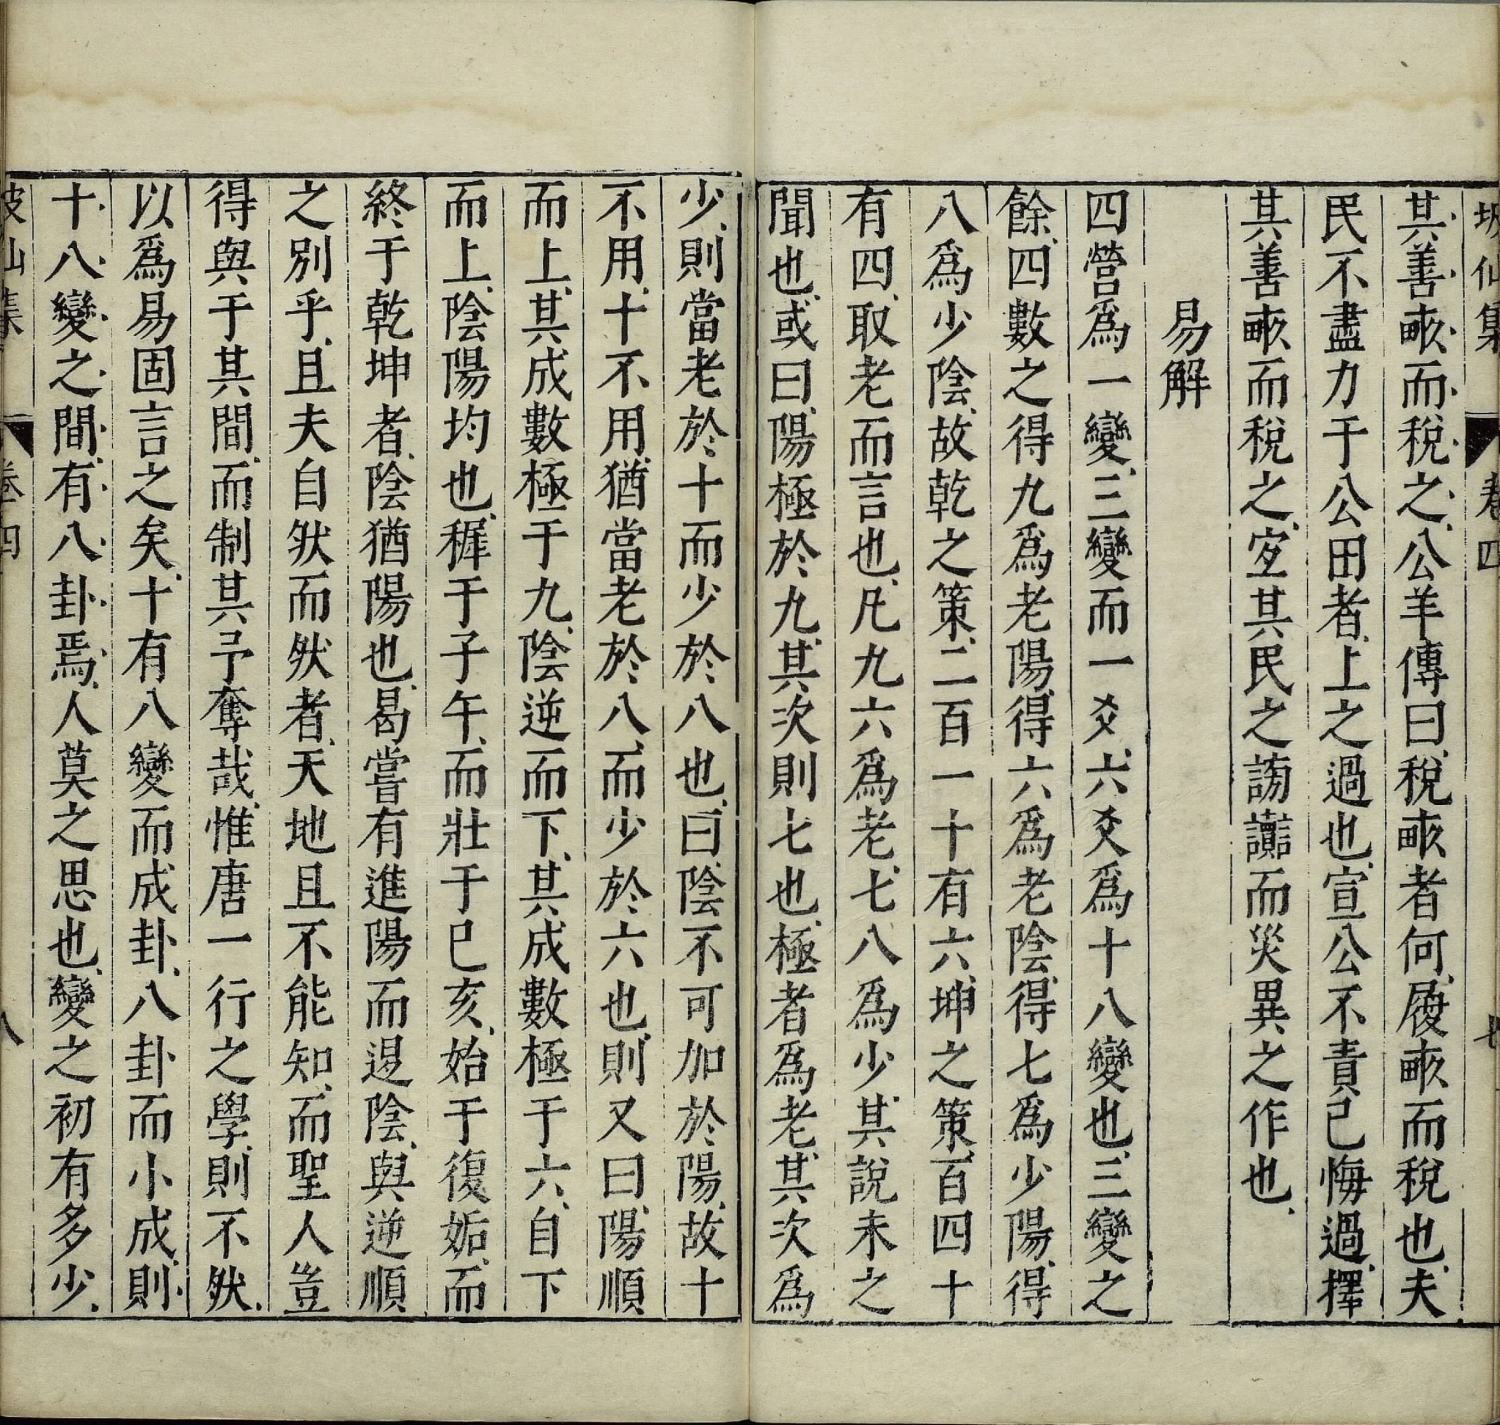 坡仙集 卷四 七
其善畝而稅之公羊傳曰稅畝者何履畝而稅也夫
民不盡力于公田者上之過也宣公不責已悔過擇
其善畝而稅之宜其民之謗讟而災異之作也
易解
四營爲一變三變而一爻六爻爲十八變也三變之
餘四數之得九爲老陽得六爲老陰得七爲少陽得
八爲少陰故乾之策二百一十有六坤之策百四十
有四取老而言也凡九六爲老七八爲少其說未之
聞也或曰陽極於九其次則七也極者爲老其次爲
少則當老於十而少於八也曰陰不可加於陽故十
不用十不用猶當老於八而少於六也則又曰陽順
而上其成數極于九陰逆而下其成數極于六自下
而上陰陽均也穉于子午而壯于巳亥始于復姤而
終于乾坤者陰猶陽也曷嘗有進陽而退陰與逆順
之別乎且夫自然而然者天地且不能知而聖人豈
得與于其間而制其予奪哉惟唐一行之學則不然
以爲易固言之矣十有八變而成卦八卦而小成則
十八變之間有八卦焉人莫之思也變之初有多少
坡仙集 卷四 八